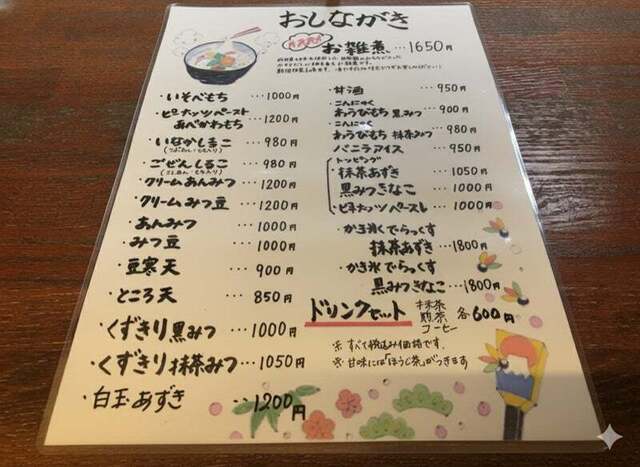 おしながき
お雑煮、…1650円
・いそべもち …1000円
・ピーナッツペースト
あべかわもち …1200円
・いなかしるこ … 980円
(つぶあん・もち入り)
・ごぜんしるこ … 980円
(こしあん・もち入り)
・クリームあんみつ … 1200円
・クリームみつ豆 … 1200円
・あんみつ … 1000円
・みつ豆 … 1000円
・豆寒天 … 900円
・ところ天 … 850円
・くずきり黒みつ … 1000円
・くずきり抹茶みつ … 1050円
・白玉あずき ‥ 1200円
・甘酒 … 950円
・こんにゃく
わらびもち 黒みつ … 900円
・こんにゃく
わらびもち 抹茶みつ … 980円
・バニラアイス … 950円
・トッピング
・抹茶あずき … 1050円
・黒みつきなこ … 1000円
・ピーナッツペースト … 1000円
・かき氷 でらっくす
抹茶あずき … 1800円
・かき氷 でらっくす
黒みつきなこ … 1800円
ドリンクセット
抹茶
煎茶 各600円
コーヒー
※ すべて税込み価格です。
※ 甘味には「ほうじ茶」がつきます